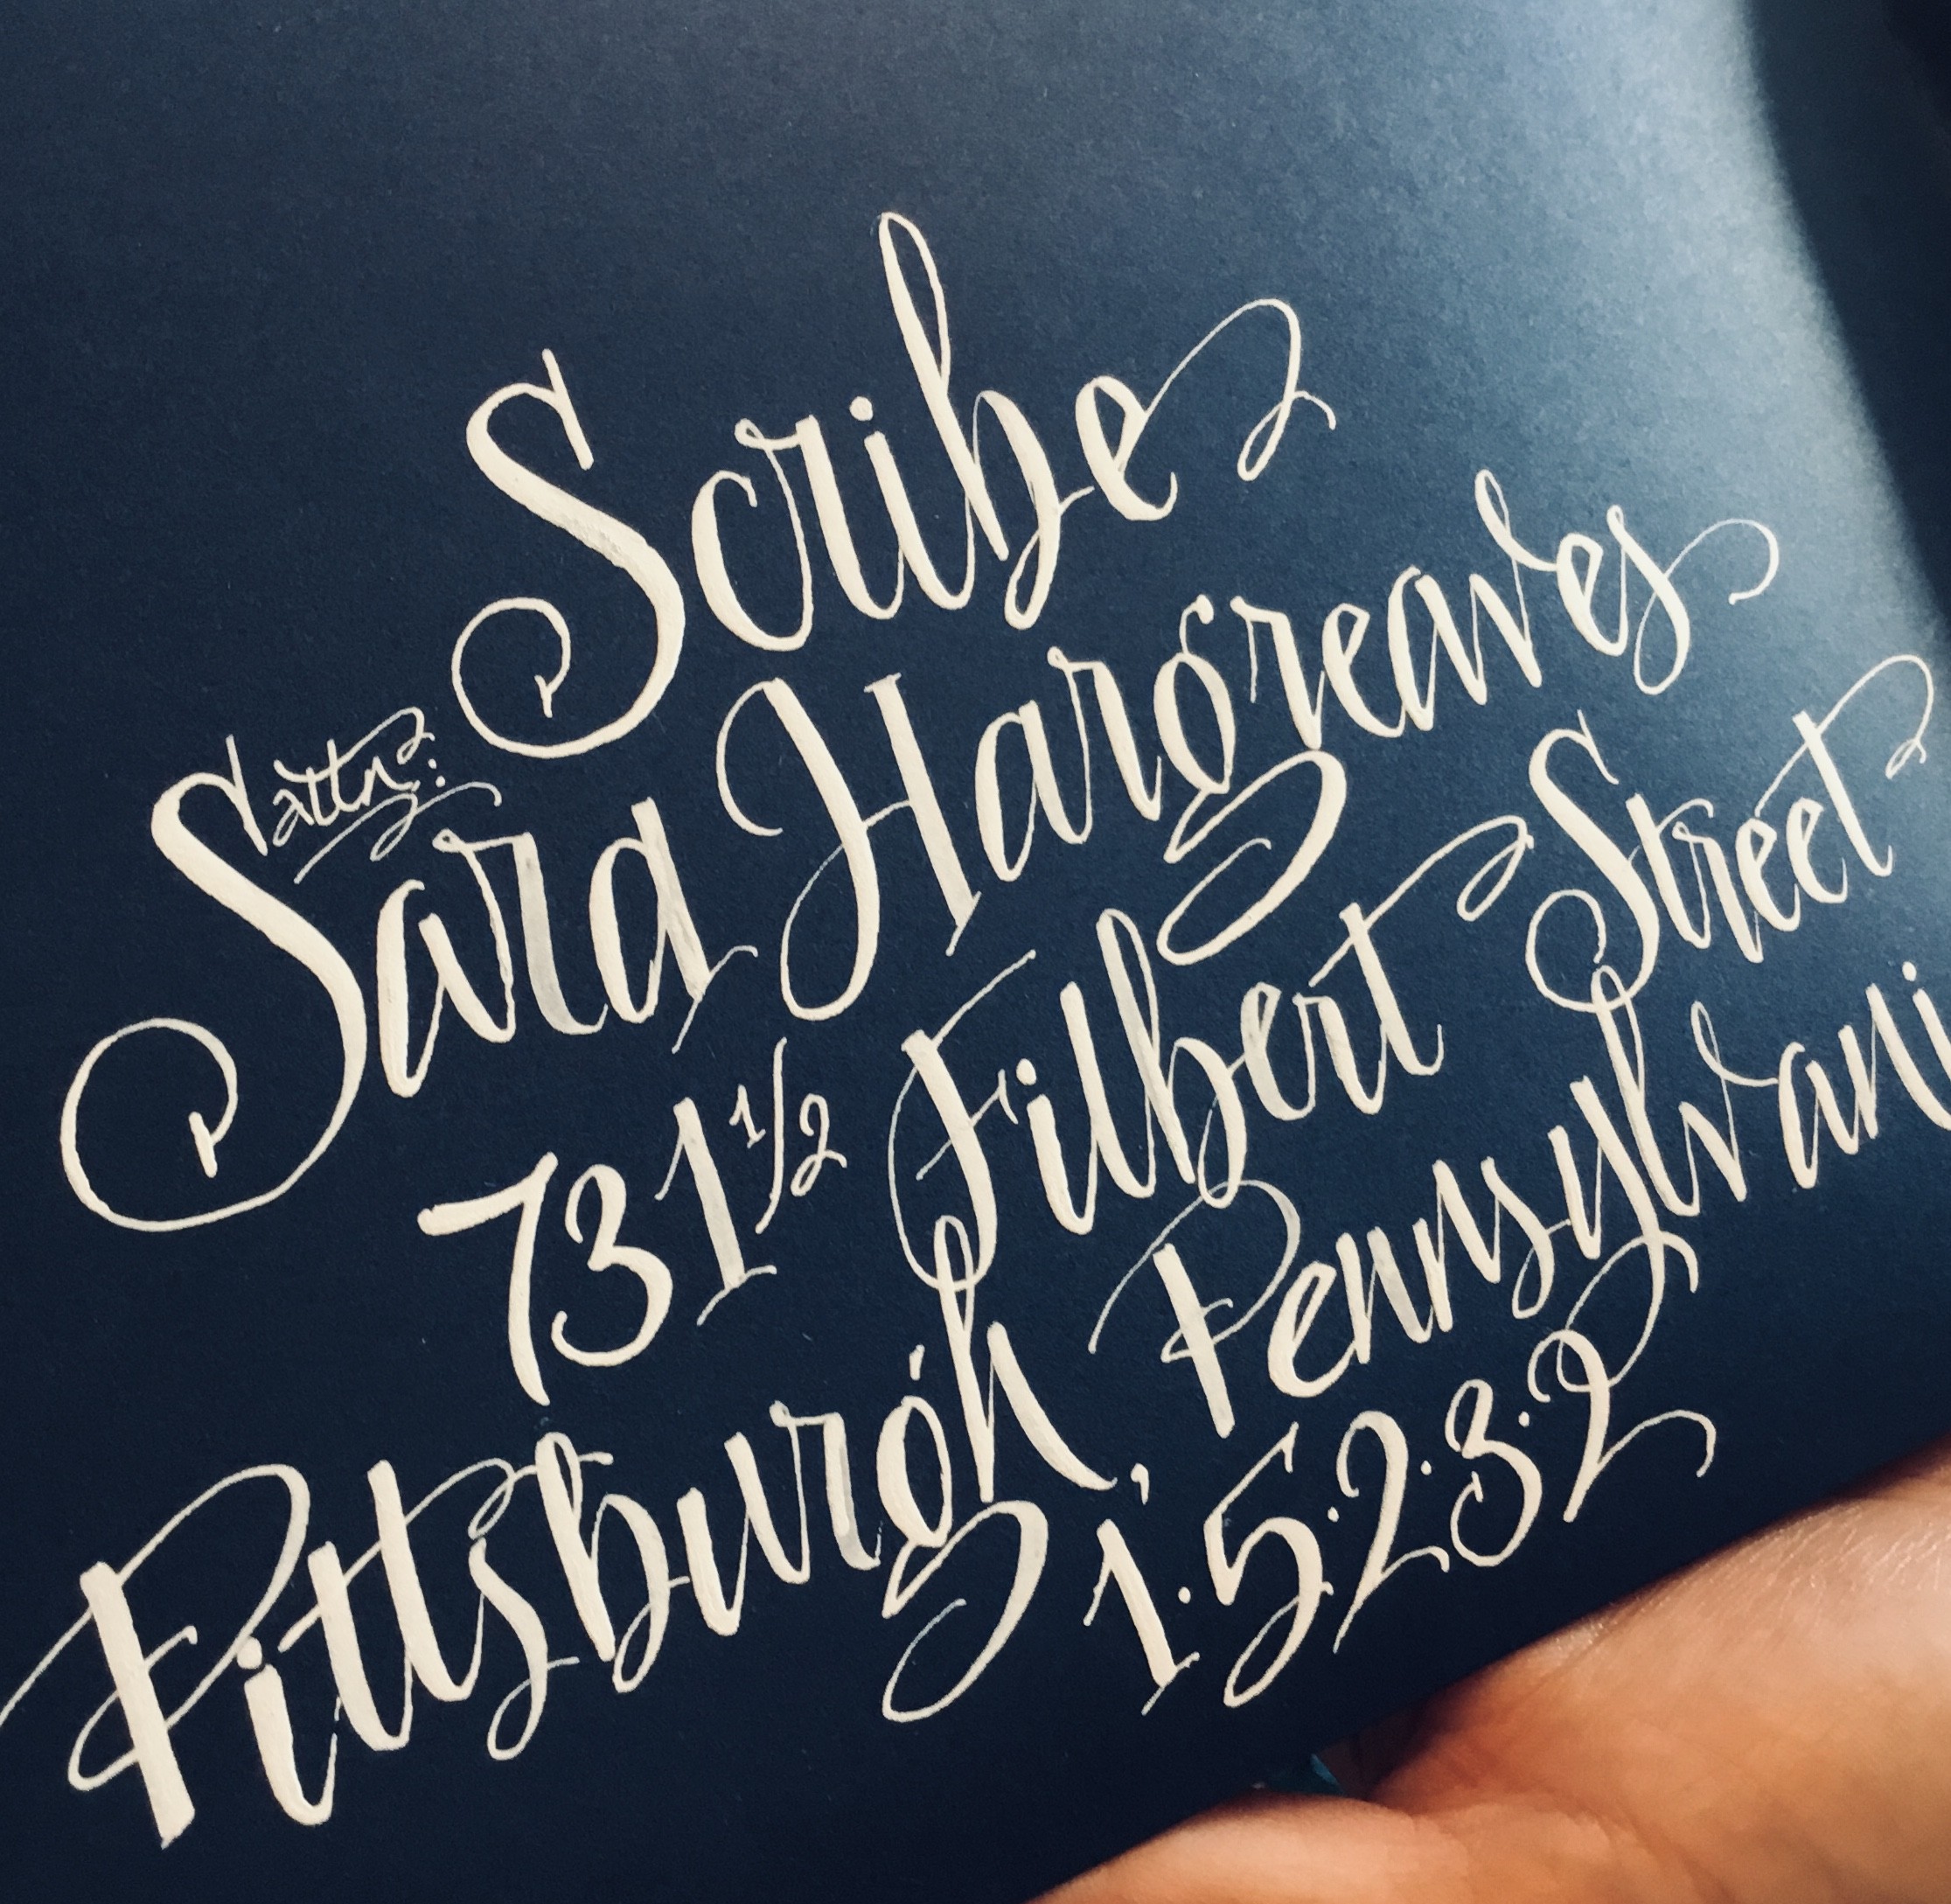 Scribe
attn:
Sara Hargreaves
731 1/2 Filbert Street
Pittsburgh, Pennsylvani
1·5·2·3·2